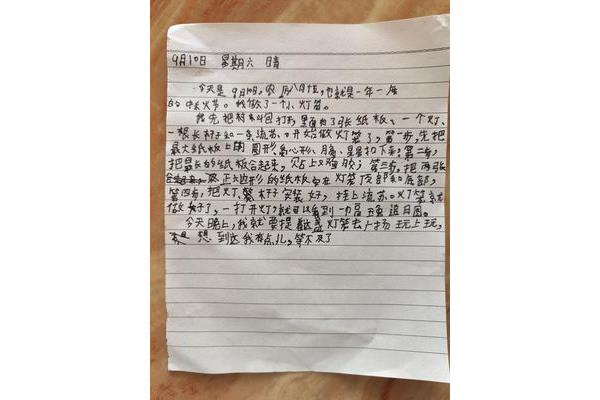 9月10日 星期六 晴
今天是9月10日,农历八月十五,也就是一年一度
的中秋节。我做了一个小灯笼。
我先把材料包打开,里面有3张纸板、一个灯、
一根长杆子和一条流苏。开始做灯笼了,第一步,先把
最大纸板上的圆形、心形、月亮、星星扣下来;第二步,
把最长的纸板合起来,贝占上双面胶;第三步,把两张
正六边形的纸板安在灯笼顶部和底部,
第四步,把灯、杆子安装好,挂上流苏。灯笼就
做好了,一打开灯,就可以看到一幅
今天晚上,我就要提着这盏灯笼去广场玩上玩,
想到这我有点儿,等不及了